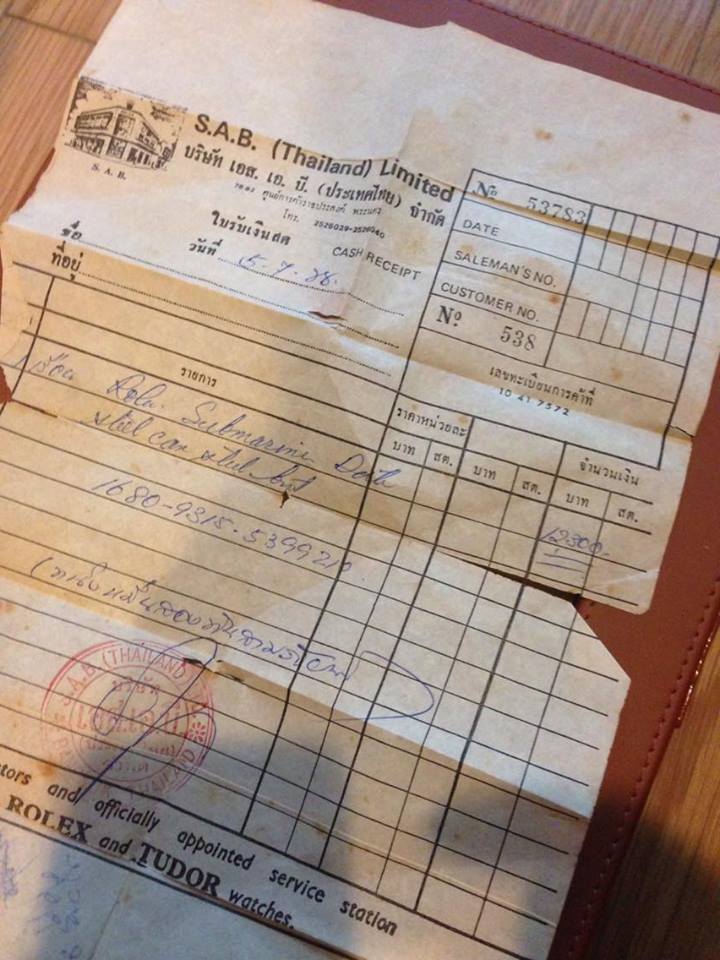 S.A.B.
S.A.B. (Thailand) Limited
บริษัท เอส. เอ. บี. (ประเทศไทย) จำกัด
ศูนย์การค้าราชประสงค์ พระนคร
โทร. 2526029-2526240
ใบรับเงินสด
CASH RECEIPT
วันที่ 5.7.
ชื่อ
ที่อยู่
№ 53783
DATE
SALEMAN'S NO.
CUSTOMER NO.
№ 538
เลขทะเบียนการค้าที่
10 41 7572
รายการ
ราคาหน่วยละ
จำนวนเงิน
บาท สต. บาท สต. บาท สต.
Submarine Date
steel
12300.-
1680-9315-5399210
(หนึ่งหมื่นสองพันสามร้อยบาท)
S.A.B. (THAILAND)
บริษัท
เอส.เอ.บี.
THAILAND
and officially appointed service station
ROLEX and TUDOR watches.